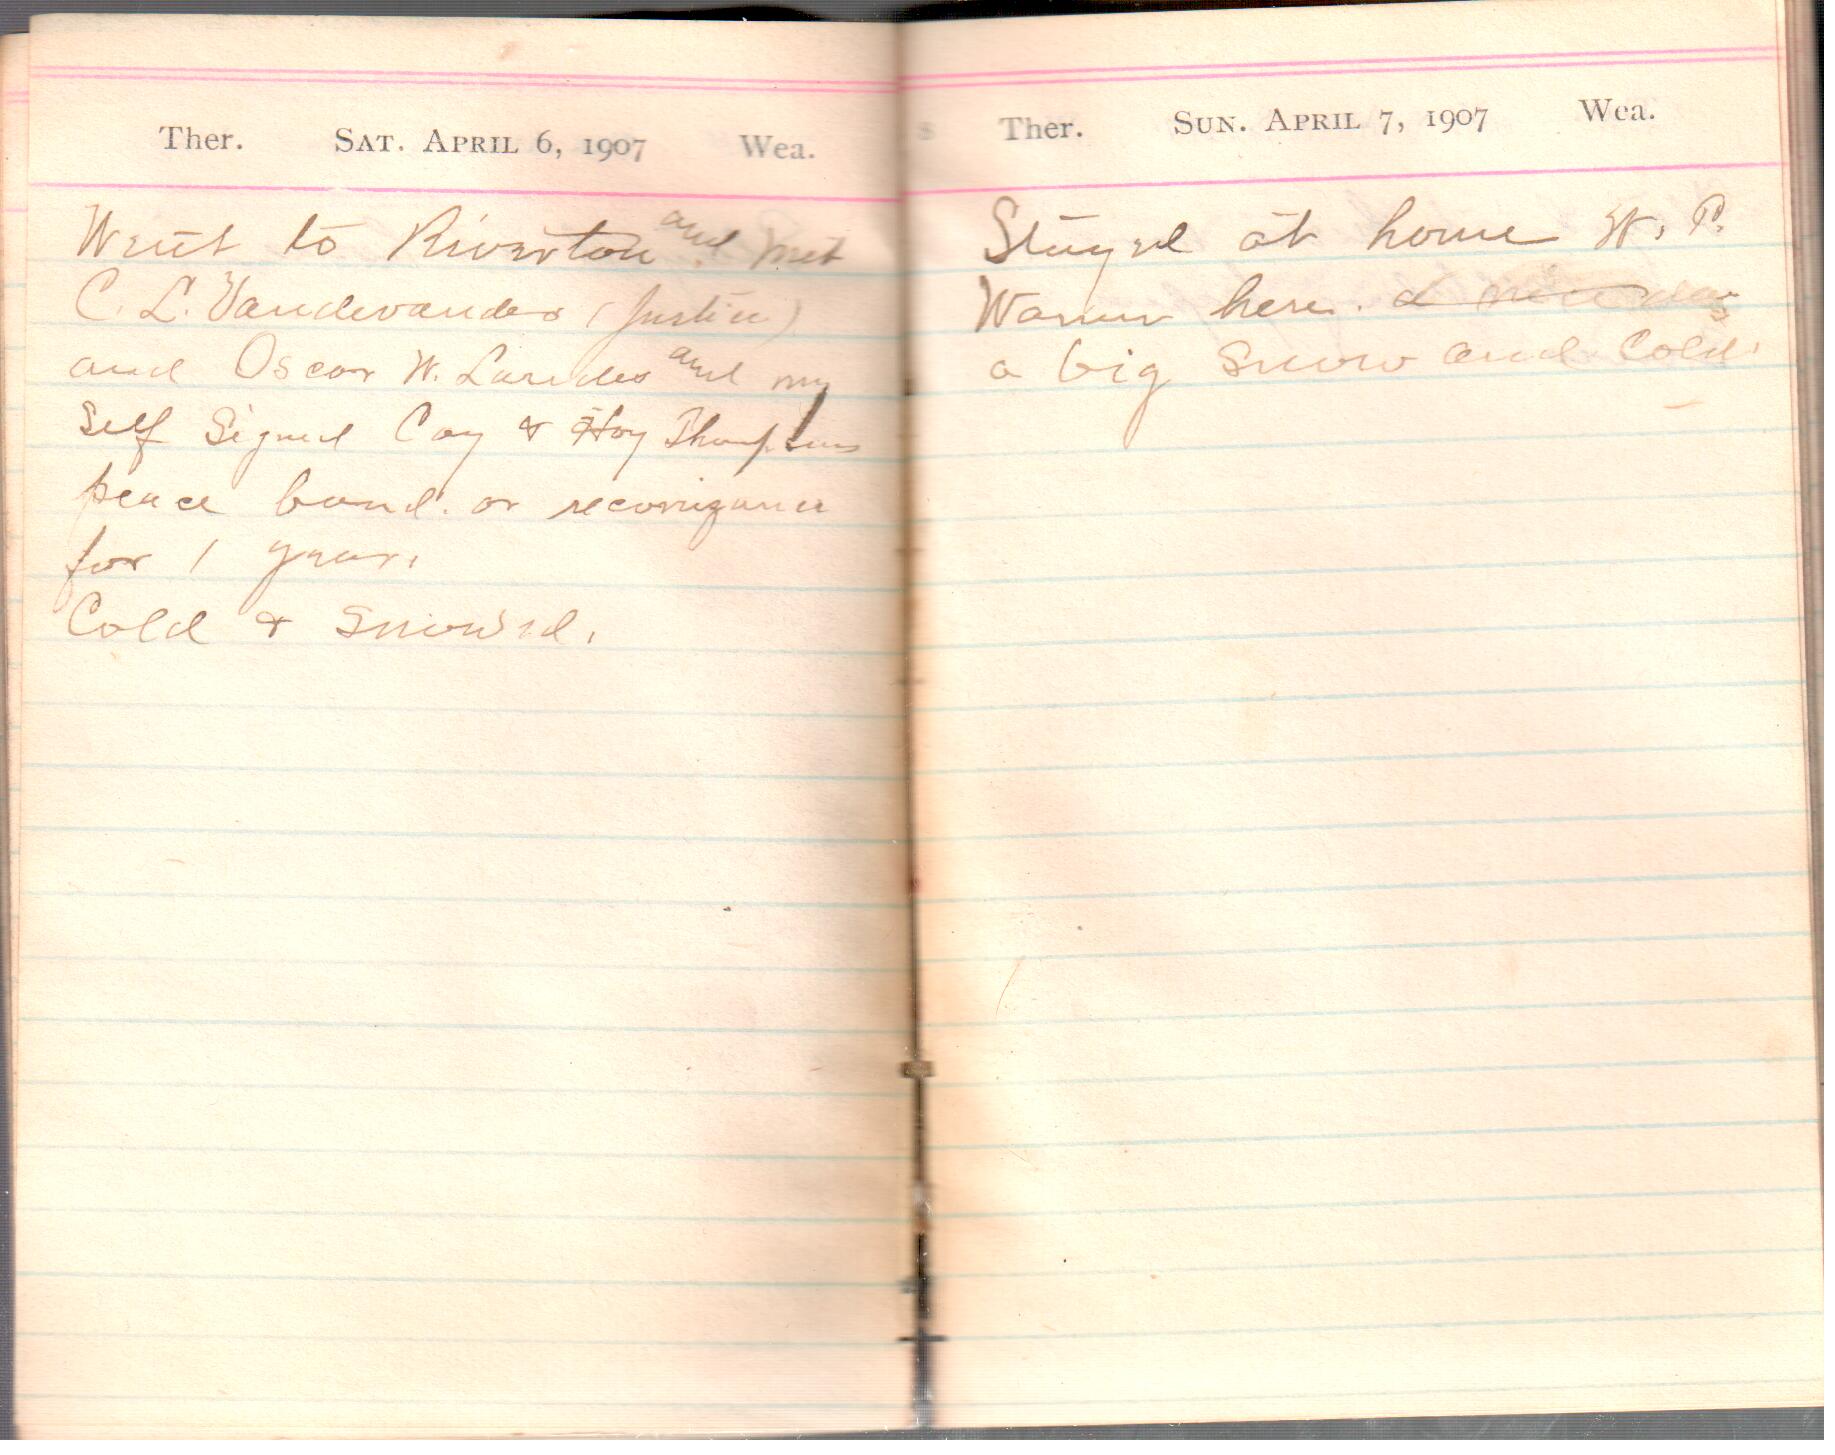 Ther. SAT. APRIL 6, 1907 Wea.
Went to Riverton and met
C. L. Vandevander (Justice)
and Oscar W. and my
Self Signed Coy & Hoy Thompsons
peace bond. or reconizance
for 1 year.
Cold & Snowed.
Ther. SUN. APRIL 7, 1907 Wea.
Stayed at home W. P.
Warner here.
a big Snow and Cold.